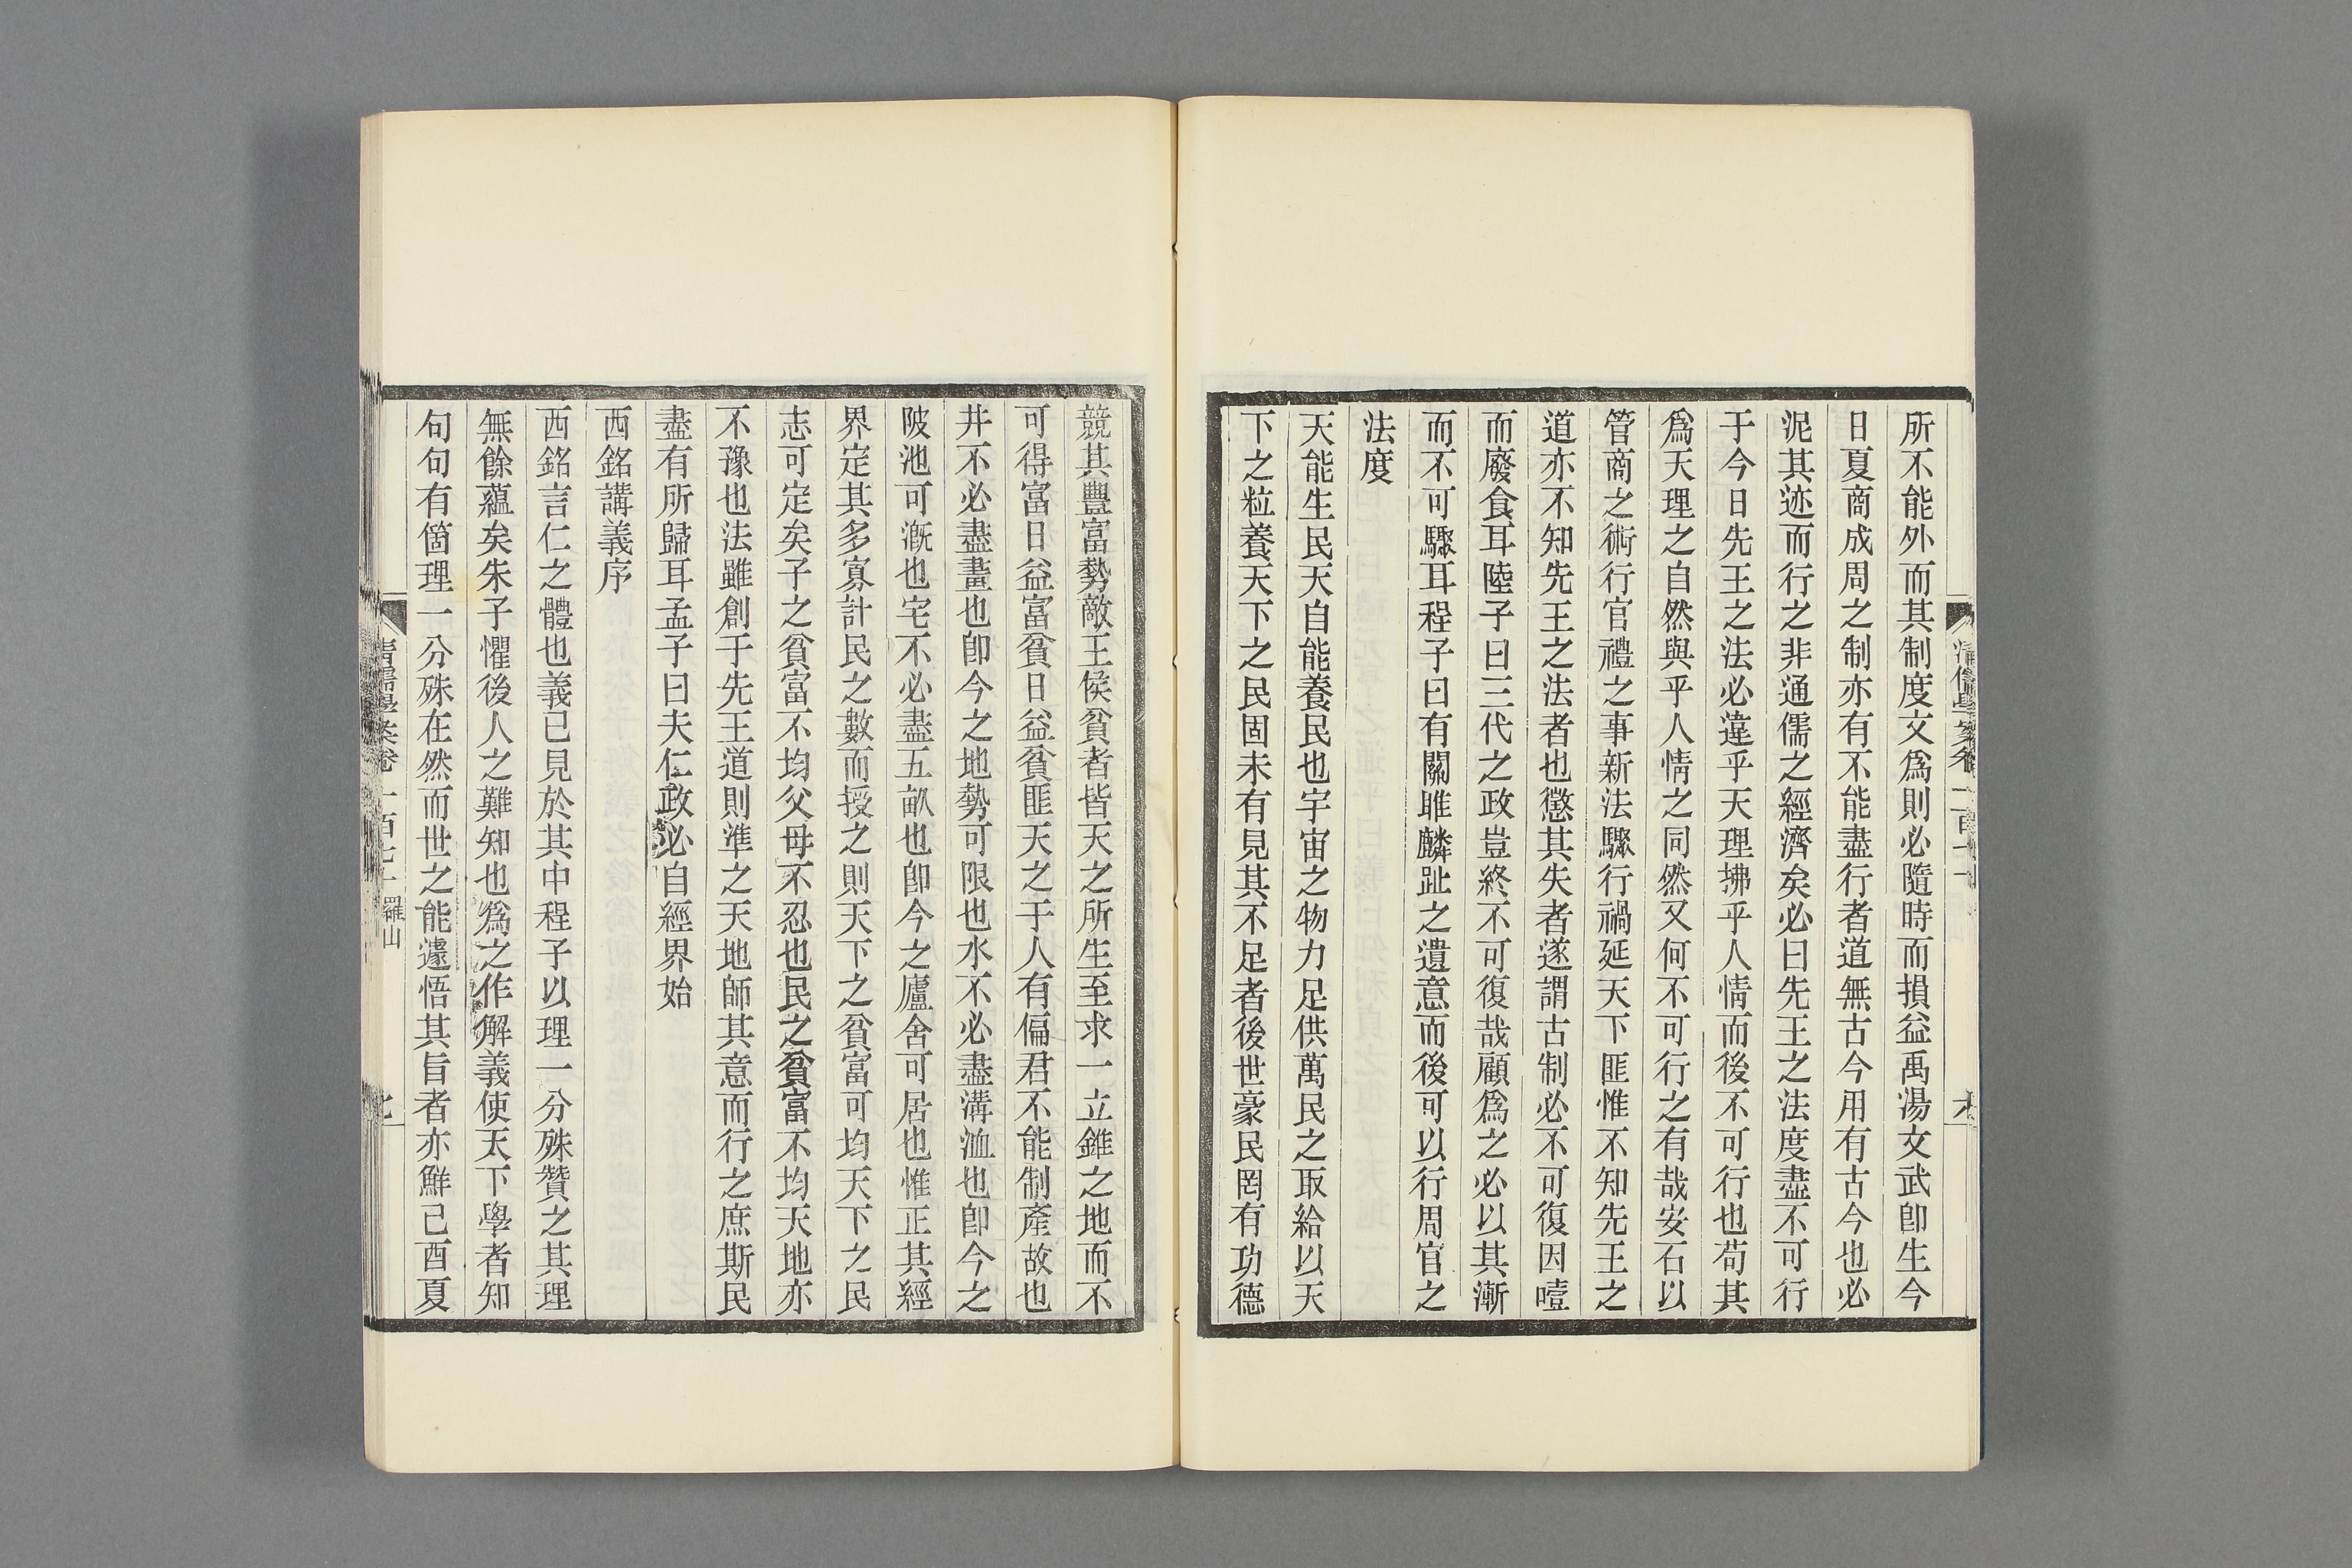 所不能外而其制度文爲則必隨時而損益禹湯文武卽生今
日夏商成周之制亦有不能盡行者道無古今用有古今也必
泥其迹而行之非通儒之經濟矣必曰先王之法度盡不可行
于今日先王之法必違乎天理拂乎人情而後不可行也苟其
爲天理之自然與乎人情之同然又何不可行之有哉安石以
管商之術行官禮之事新法驟行禍延天下匪惟不知先王之
道亦不知先王之法者也懲其失者遂謂古制必不可復因噎
而廢食耳陸子曰三代之政豈終不可復哉顧爲之必以其漸
而不可驟耳程子曰有關雎麟趾之遺意而後可以行周官之
法度
天能生民天自能養民也宇宙之物力足供萬民之取給以天
下之粒養天下之民固未有見其不足者後世豪民罔有功德
競其豐富勢敵王侯貧者皆天之所生至求一立錐之地而不
可得富日益富貧日益貧匪天之于人有偏君不能制產故也
井不必盡畫也卽今之地勢可限也水不必盡溝洫也卽今之
陂池可漑也宅不必盡五畝也卽今之廬舍可居也惟正其經
界定其多寡計民之數而授之則天下之貧富可均天下之民
志可定矣子之貧富不均父母不忍也民之貧富不均天地亦
不豫也法雖創于先王道則準之天地師其意而行之庶斯民
盡有所歸耳孟子曰夫仁政必自經界始
西銘講義序
西銘言仁之體也義已見於其中程子以理一分殊贊之其理
無餘蘊矣朱子懼後人之難知也爲之作解義使天下學者知
句句有箇理一分殊在然而世之能遽悟其旨者亦鮮己酉夏
清儒學案卷一百七十 羅山 七